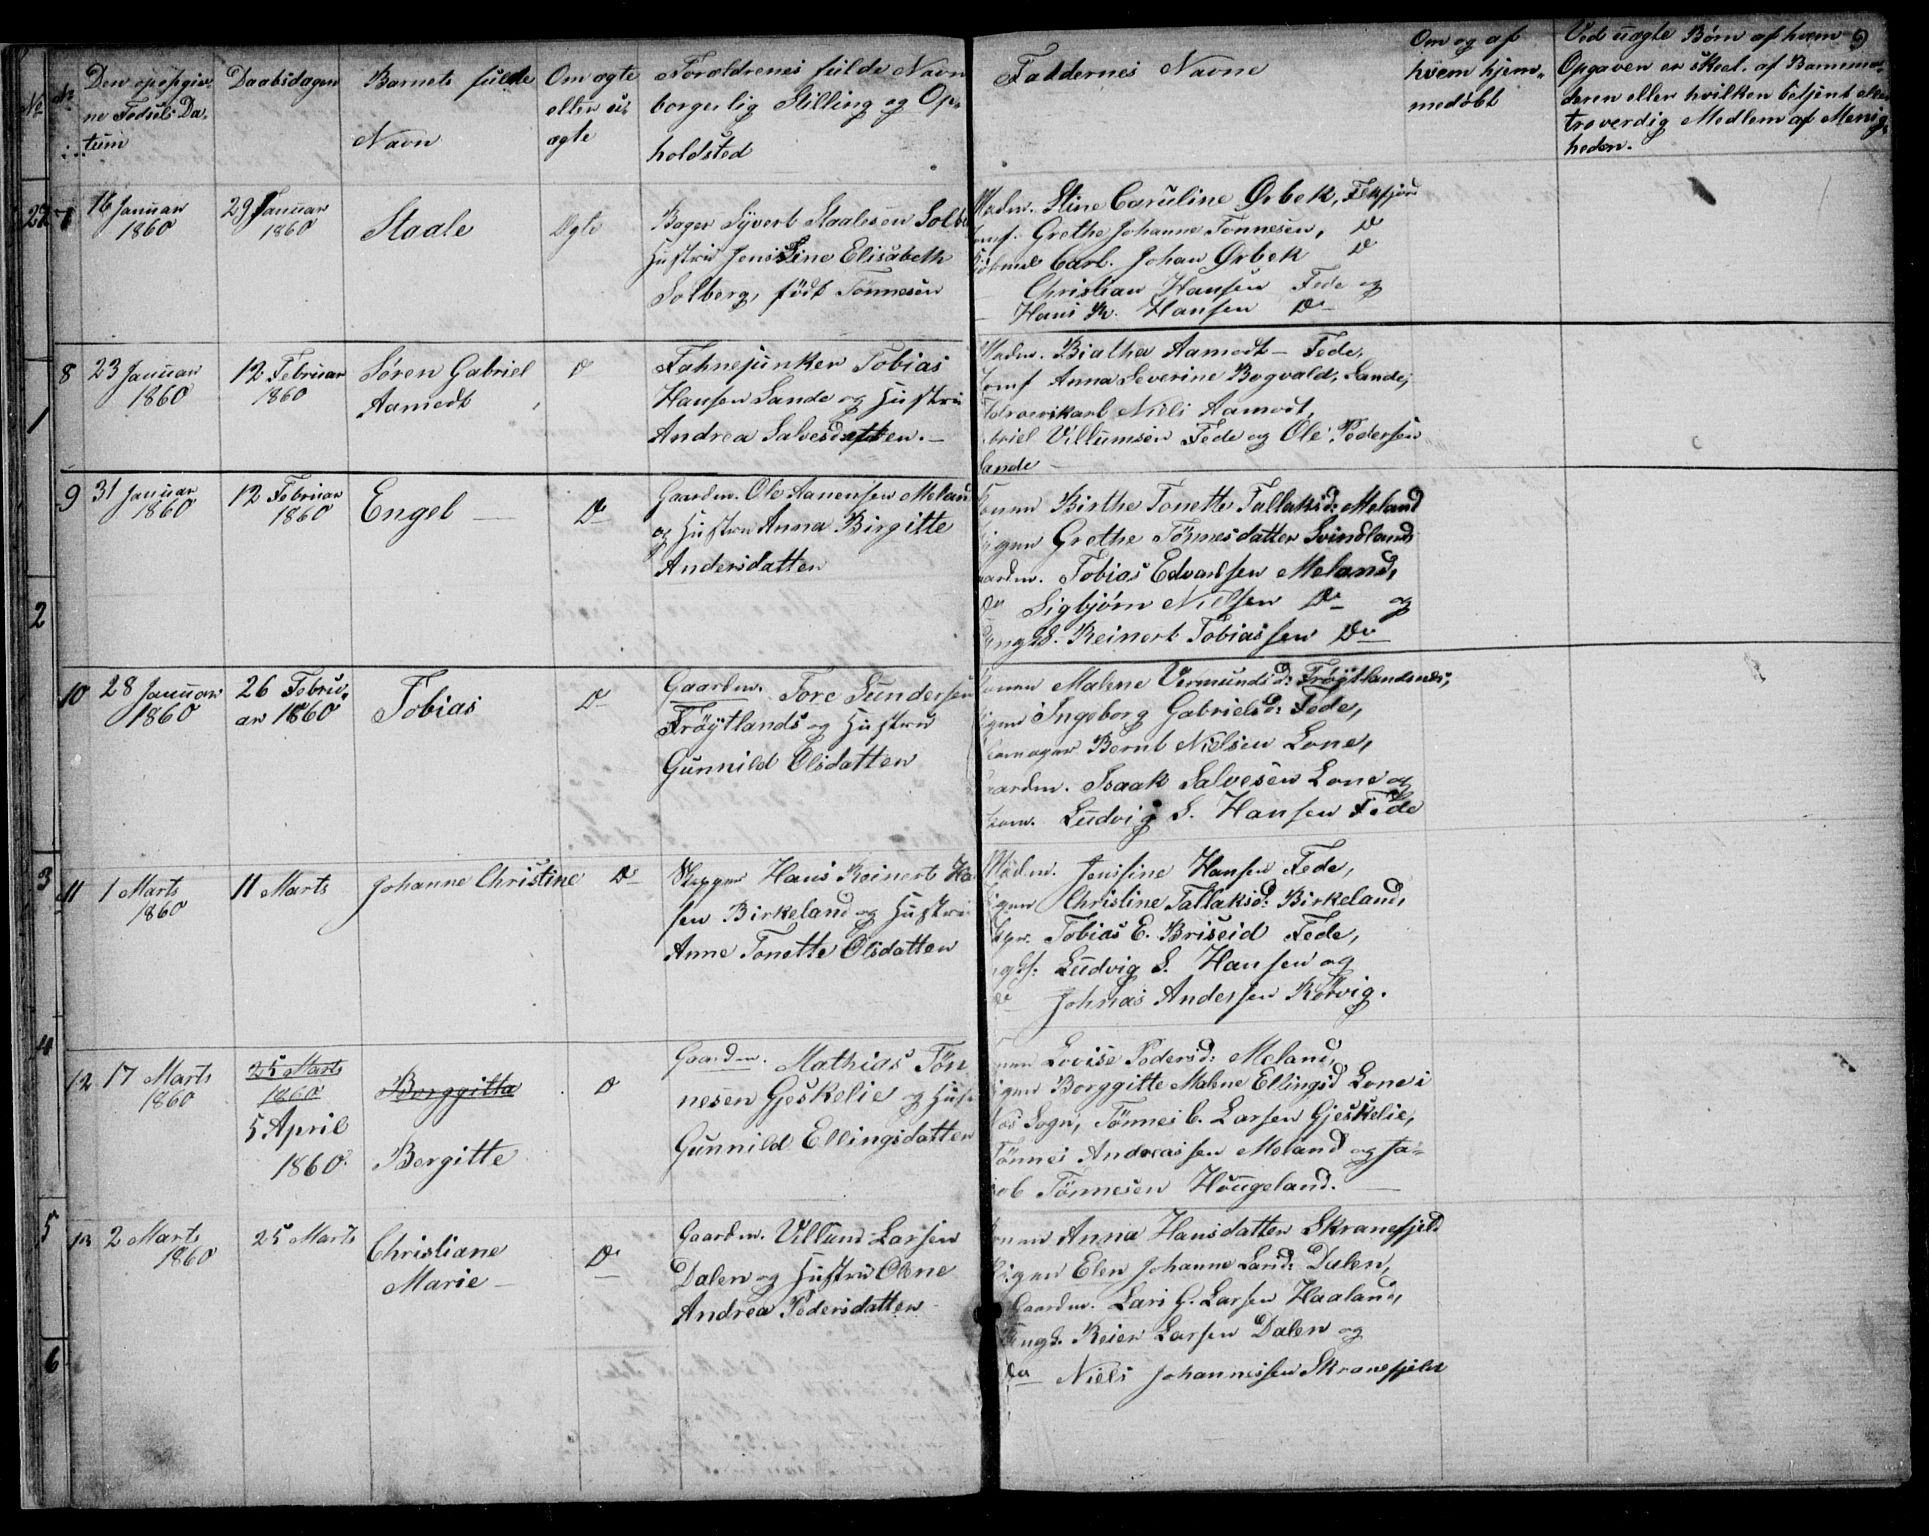 No
Den opgivne Fødsels Datum
Daabsdagen
Barnets fulde Navn
Om ægte eller uægte
Forældrenes fulde Navn borgerlig Stilling og Opholdsted
Faddernes Navne
Om og af hvem hjemmedøbt
Ved uægte Børn af hvem
Opgaven er skeet. af Barnemo-
deren eller hvilken betjent eller
troverdig Medlem af Menig-
heden.
9
16 Januar 1860
29 Januar 1860
Staale
Ægte
Søver Syvert Staalesen Solbe
Hustru Jensine Elisabeth
Solberg, født Tönnesen
Madm. Stine Caruline Ørbek, Fekfjord
Jomf. Grethe Johanne Tonnesen, Do
Carl. Johan Ørbek Do
Christian Hansen Fede og
Hans R. Hansen Do
8
23 Januar 1860
12 Februar 1860
Søren Gabriel
Aamodt
Do
Fahnejunker Tobias
Hansen Sande og Hustru
Andrea Salvesdatter.
Madm. Biatha Aamodt Fede,
Jomf Anna Severine Bogvald, Sande,
Niels Aamodt,
Villumsen Fede og Ole Pedersen
Sande
9
31 Januar 1860
12 Februar 1860
Engel
Do
Gaardm. Ole Aanensen Melan
og Hustru Anna Birgitte
Andersdatter
Konen Birthe Tonette Tallaksd: Meland
Pigen Grethe Tönnesdatter Svindland
Gaardm. Tobias Edvardsen Meland,
Do Sigbjørn Nielsen Do og
Ungk. Reinert Tobiassen Do
10
28 Januar 1860
26 Febru-
ar 1860
Tobias
Do
Gaardm. Tore Gundersen
Fröytlands og Hustru
Gunnild Olsdatter
Konen Malene Vermunds d: Fröytlandsnes,
Pigen Ingeborg Gabrielsd: Fede,
Bernt Nielsen Lone,
Gaardm. Isaak Salvesen Lone og
Ludvig S. Hansen Fede
11
1 Marts 1860
11 Marts
Johanne Christine
Do
Skipper Hans Reinert Ha
sen Birkeland og Hustru
Anne Tonette Olsdatter
Madm. Jensine Hansen Fede,
Pigen Christine Tallaksd: Birkeland,
Skpr. Tobias E. Briseid Fede,
Ludvig S. Hansen og
Do Johnas Andersen Rörvig.
12
17 Marts 1860
25 Marts
1860
5 April
1860
Borggitta
Bergitte
Do
Gaardm. Mathias Tön
nesen Gjeskelie og Hust
Gunnild Ellingsdatter
Konen Lovise Pedersd: Meland,
Pigen Borggitte Malene Ellingsd Lone i
Næs Sogn, Tönnes C. Larsen Gjeskelie,
Tönnes Andreassen Meland og Ja-
cob Tönnesen Hougeland.
13
2 Marts 1860
25 Marts
Christiane
Marie
Do
Gaardm. Villund Larsen
Dalen og Hustru Olene
Andrea Pedersdatter
Konen Anna Hansdatter Skranefjeld
Pigen Elen Johanne Larsd: Dalen,
Gaardm. Lars G. Larsen Haaland,
Ungk. Reier Larsen Dalen og
Do Niels Johannessen Skranefjeld
1
2
3
4
5
6